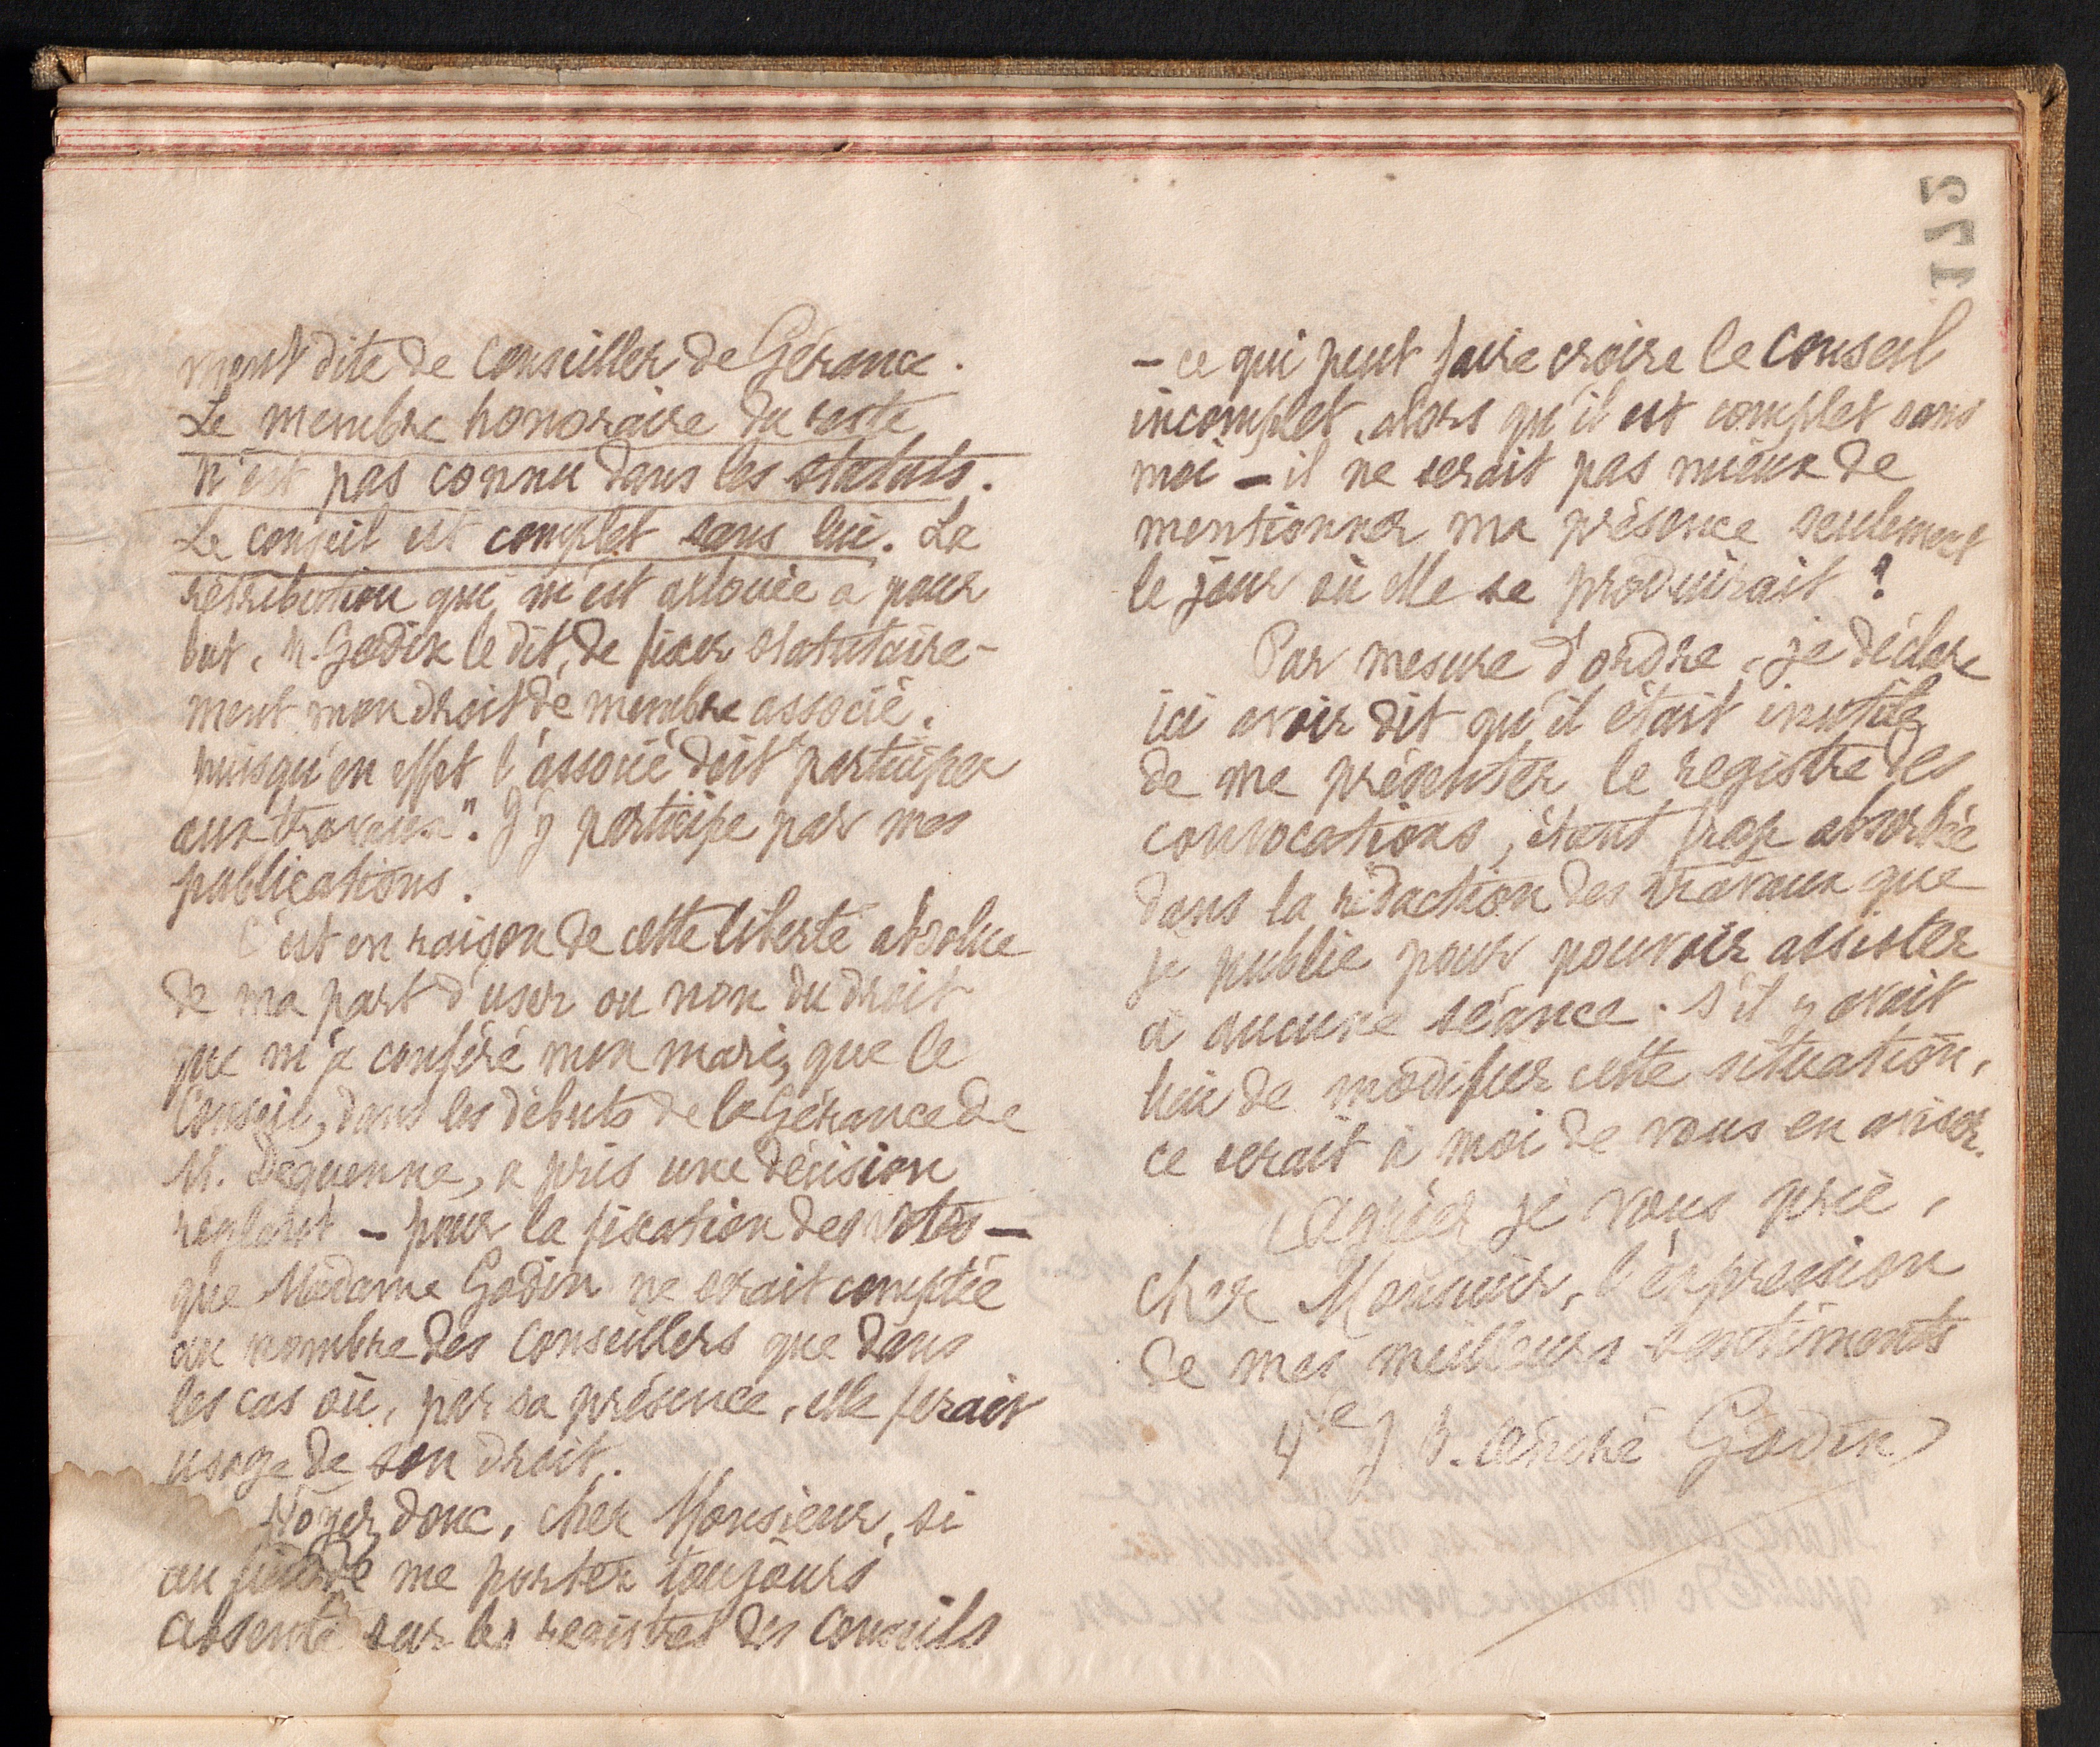 ment dite de Conseiller de Gérance.
Le membre honoraire du reste
n'est pas connu dans les statuts.
Le conseil est complet sans lui. La
rétribution qui m'est allouée a pour
but, M. Godin le dit, de fixer statutaire-
ment mon droit de membre associé.
puisqu'en effet l'associé doit "participer
aux travaux". J'y participe par mes
publications.
C'est en raison de cette liberté absolue
de ma part d'user ou non du droit
que m'a conféré mon mari, que le
Conseil, dans les débuts de la Gérance de
M. Dequenne, a pris une décision
réglant - pour la fixation des votes -
que Madame Godin ne serait comptée
au nombre des Conseillers que dans
les cas où, par sa présence, elle ferait
usage de son droit.
Voyez donc, cher Monsieur, si
au lieu de me porter toujours
absente sur les registres des Conseils
172
- ce qui peut faire croire le Conseil
incomplet, alors qu'il est complet sans
moi - il ne serait pas mieux de
mentionner ma présence seulement
le jour où elle se produirait ?
Par mesure d'ordre, je déclare
ici avoir dit qu'il était inutile
de me présenter le registre des
convocations, étant trop absorbée
dans la rédaction des travaux que
je publie pour pouvoir assister
à aucune séance. S'il y avait
lieu de modifier cette situation,
ce serait à moi de vous en aviser.
Agréez je vous prie,
cher Monsieur, l'expression
de mes meilleurs sentiments
Vve J. B. André Godin